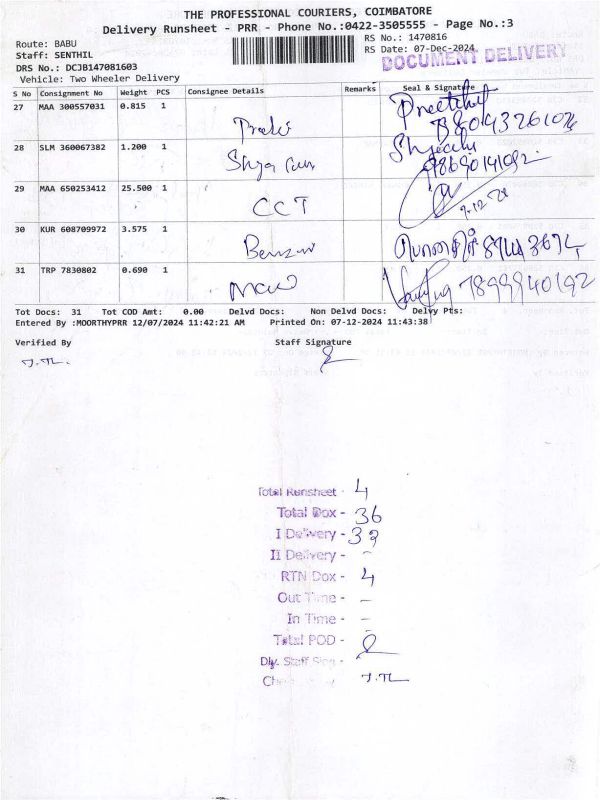 THE PROFESSIONAL COURIERS, COIMBATORE
Delivery Runsheet - PRR - Phone No.:0422-3505555 - Page No.:3
Route: BABU
RS No.: 1470816
Staff: SENTHIL
RS Date: 07-Dec-2024
DOCUMENT DELIVERY
DRS No.: DCJB147081603
Vehicle: Two Wheeler Delivery
S No Consignment No Weight PCS Consignee Details Remarks Seal & Signature
27 MAA 300557031 0.815 1
28 SLM 360067382 1.200 1
29 MAA 650253412 25.500 1 CCT
30 KUR 608709972 3.575 1
31 TRP 7830802 0.690 1 7899940192
Tot Docs: 31 Tot COD Amt: 0.00 Delvd Docs: Non Delvd Docs: Delvy Pts:
Entered By :MOORTHYPRR 12/07/2024 11:42:21 AM Printed On: 07-12-2024 11:43:38
Verified By Staff Signature
Total Runsheet - 4
Total Dox - 36
I Delivery -
II Delivery - -
RTN Dox - 4
Out Time - -
In Time - -
Total POD -
Dly. Staff Sign -